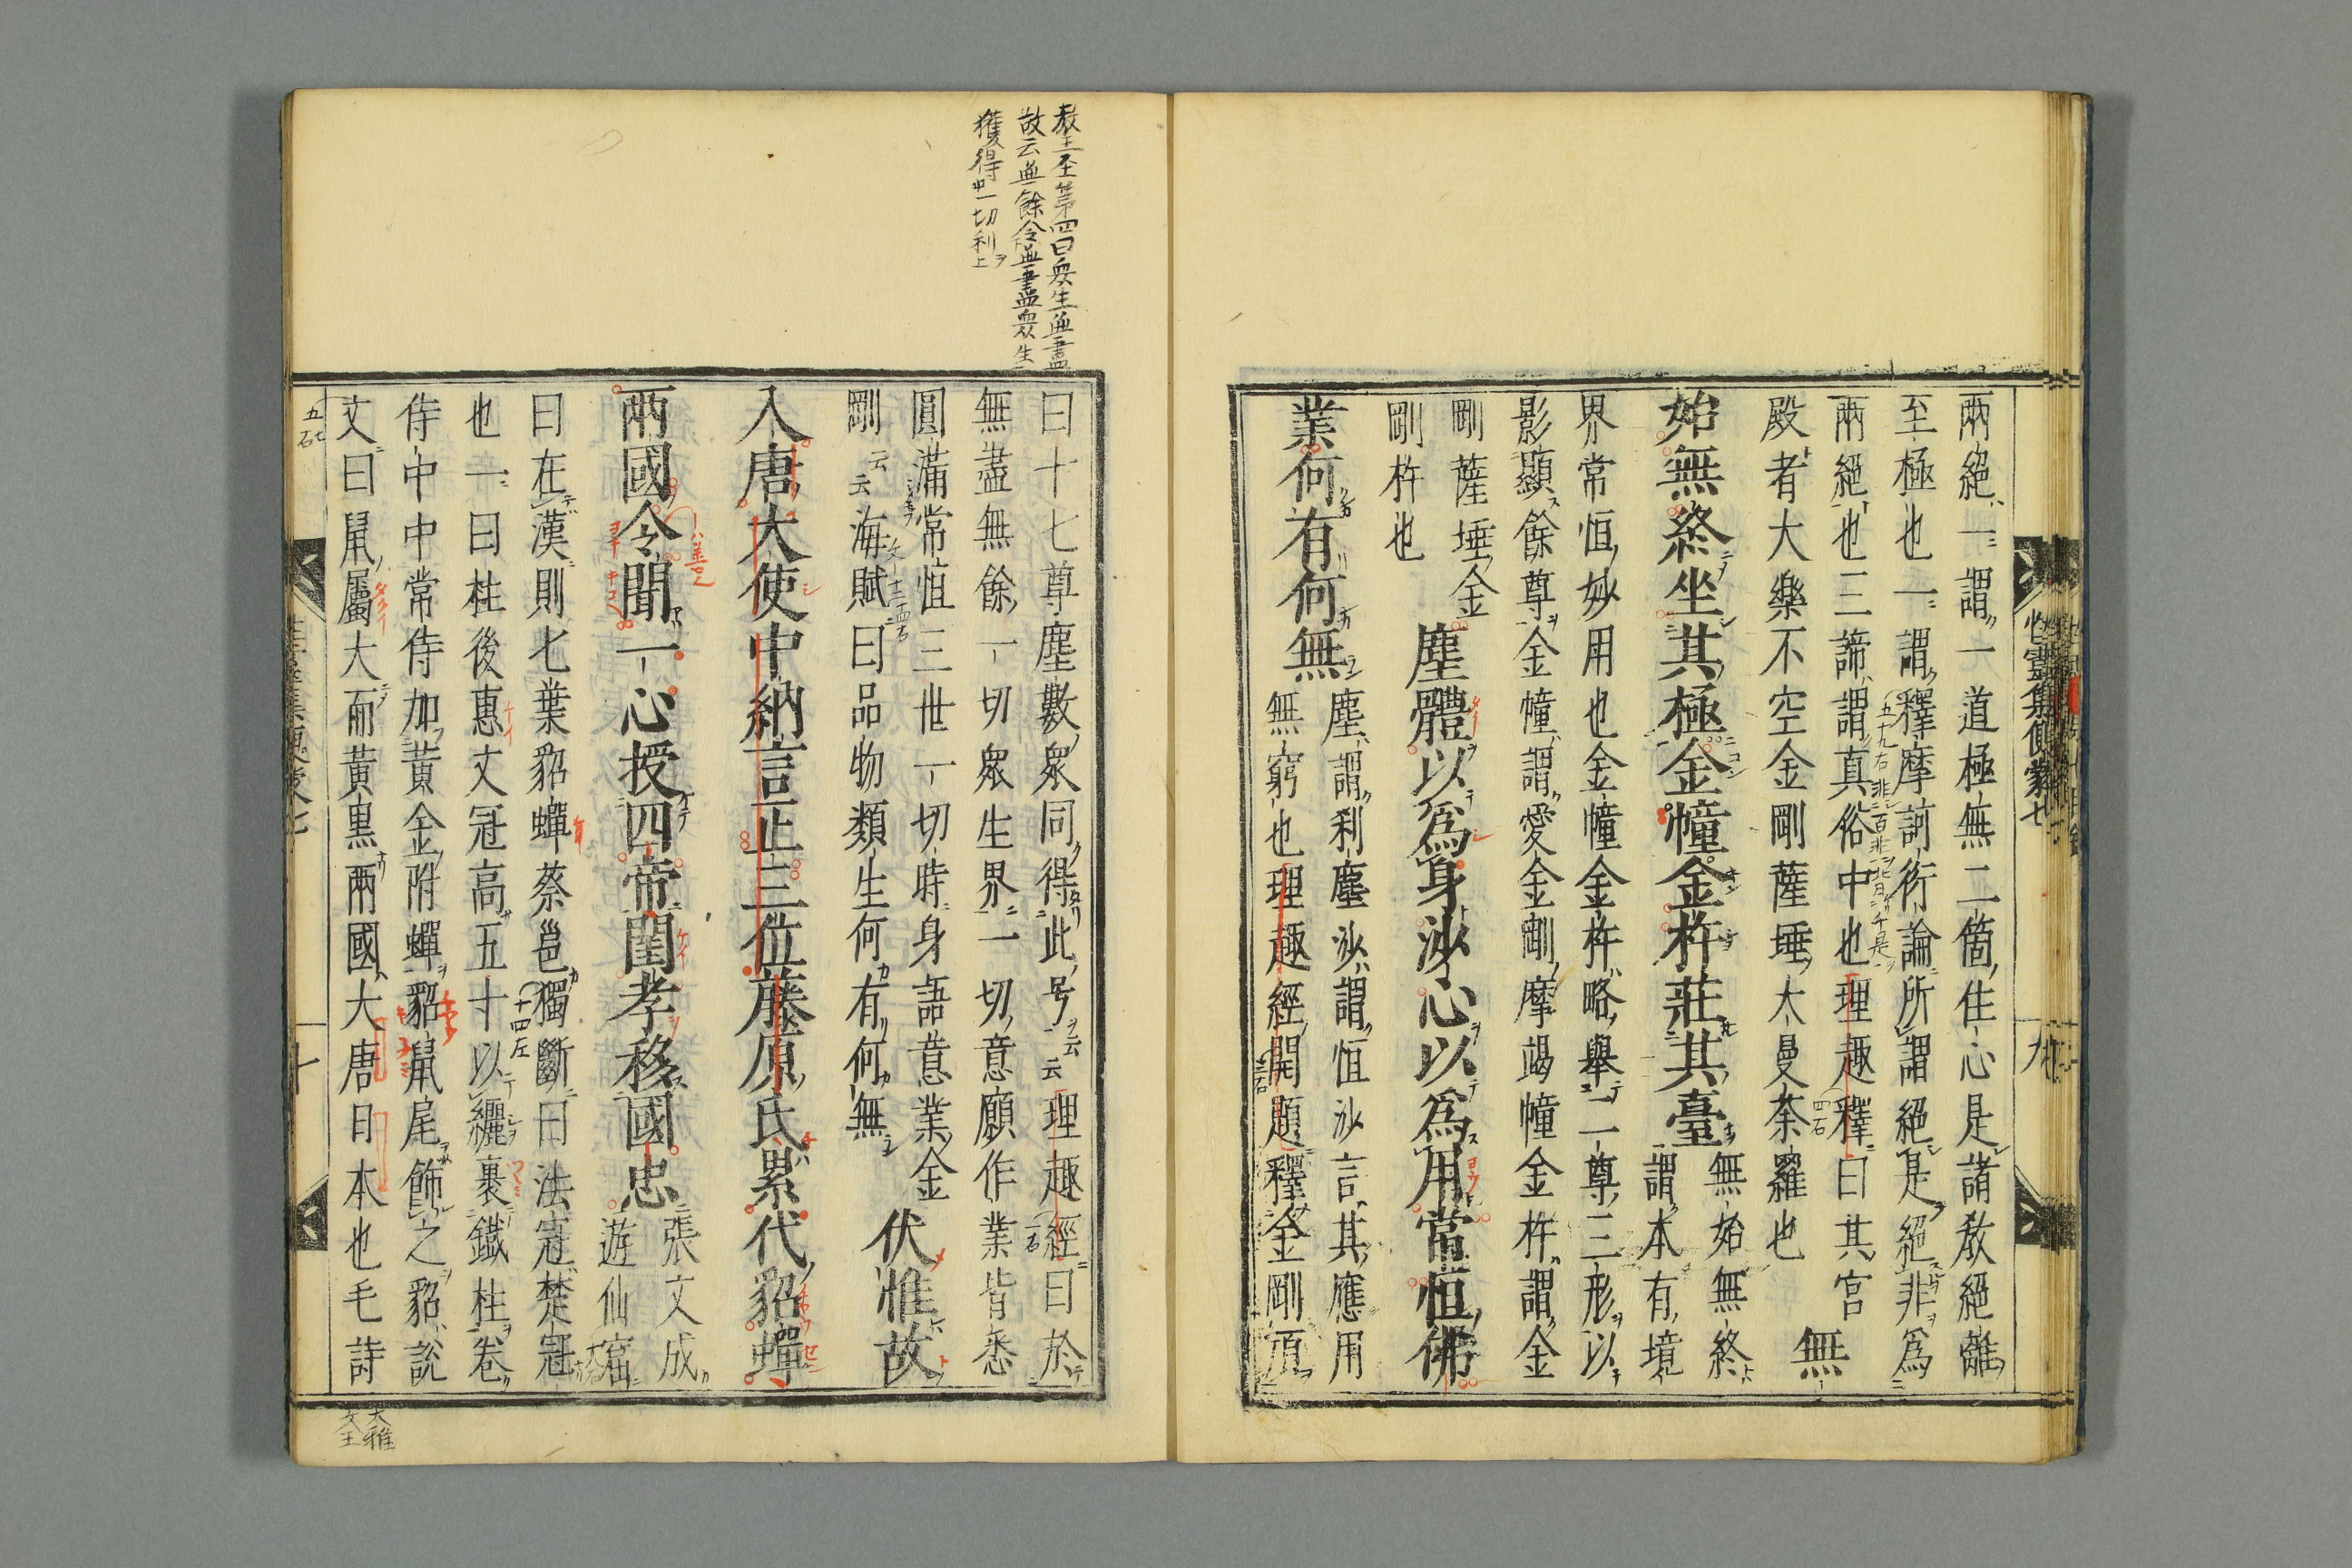 兩絕一謂一道極無二箇住心是諸教絕離
至極也一謂釋摩訶衍論所謂絕是絕非爲
兩絕也三諦謂真俗中也理趣釋曰其宮
殿者大樂不空金剛薩埵大曼荼羅也
無
始無終坐其極金幢金杵莊其臺
無始無終
謂本有境
界常恒妙用也金幢金杵略舉二尊三形以
影顯餘尊金幢謂愛金剛摩竭幢金杵謂金
剛薩埵金
剛杵也
塵體以爲身沙心以爲用當恒佛
業何有何無
塵謂利塵沙謂恒沙言其應用
無窮也理趣經開題釋金剛頂
性靈集便蒙七
九
教王至第四曰衆生無盡
故云無餘令無盡無盡衆生
獲得一切利
曰十七尊塵數衆同得此号云云理趣經曰於
無盡無餘一切衆生界一切意願作業皆悉
圓滿常恒三世一切時身語意業金
剛云云海賦曰品物類生何有何無
伏惟故
入唐大使中納言正三位藤原氏累代貂蟬
兩國令聞一心授四帝閨孝移國忠
張文成
遊仙窟
曰在漢則七葉貂蟬蔡邕獨斷曰法冠楚冠
也一曰柱後惠文冠高五寸以纚裹鐵柱卷
侍中中常侍加黃金附蟬貂鼠尾飾之貂說
文曰鼠屬大而黃黒兩國大唐日本也毛詩
十
大雅
文王